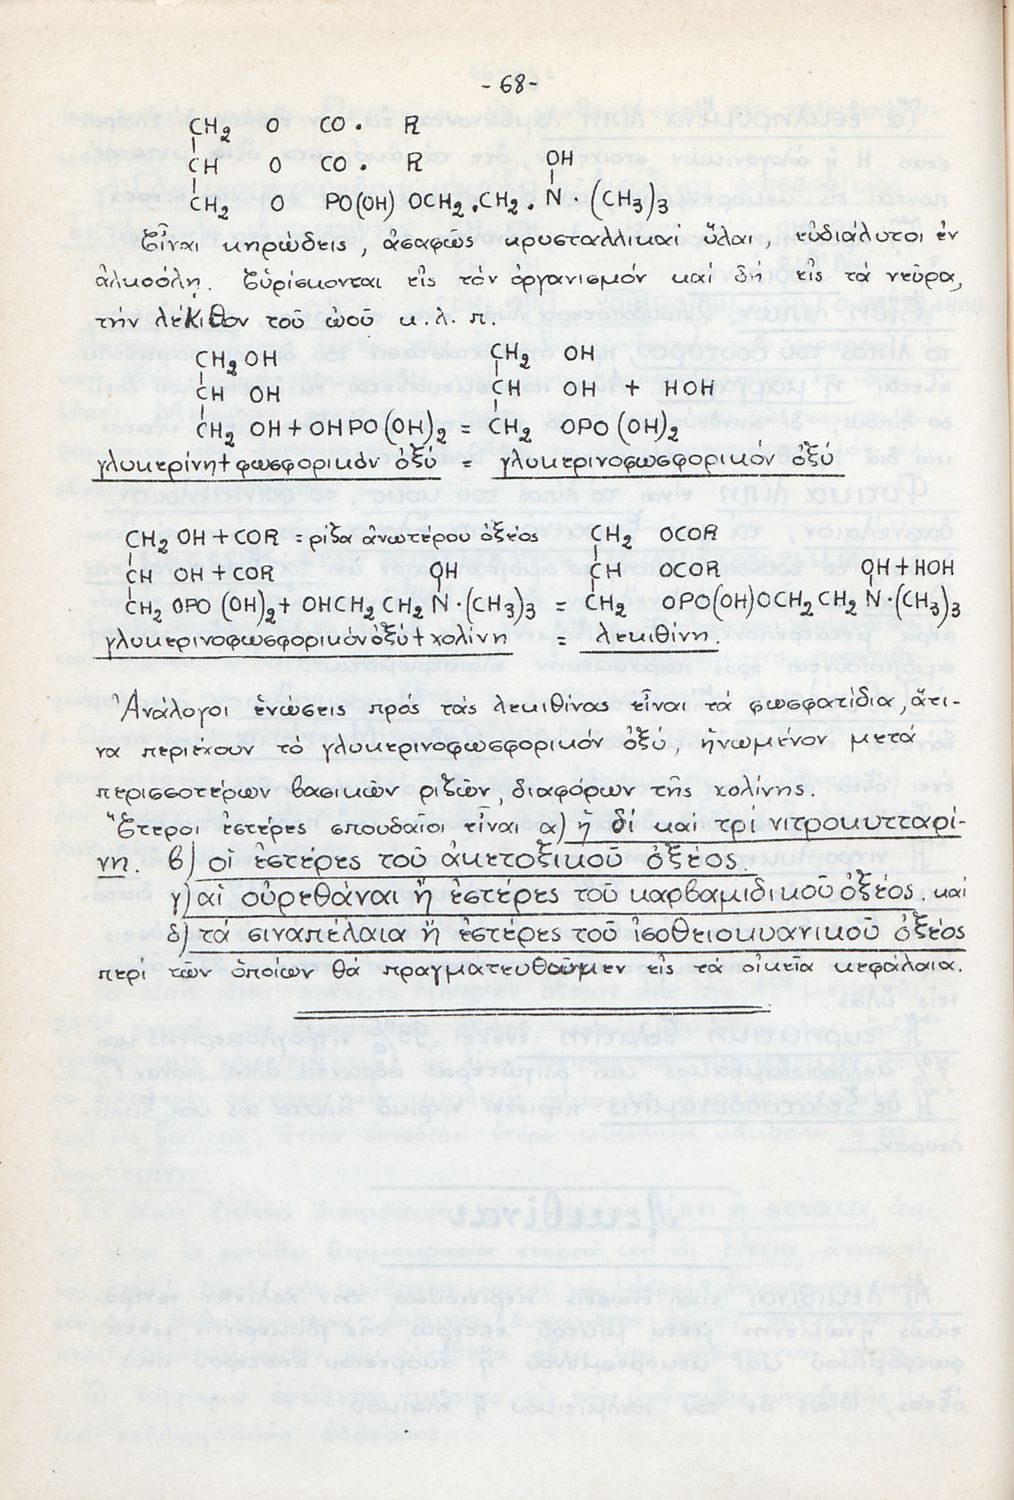 -68-
CH₂ O CO. R
CH O CO. R OH
CH₂ O PO(OH) OCH₂.CH₂. N.(CH₃)₃
Εἶναι κηρώδεις, ἀσαφῶς κρυσταλλικαί ὕλαι, εὐδιάλυτοι ἐν
ἀλκοόλῃ. Εὑρίσκονται εἰς τόν ὀργανισμόν καί δή εἰς τά νεῦρα,
τήν λέκιθον τοῦ ὠοῦ κ.λ.π.
CH₂ OH CH₂ OH
CH OH CH OH + HOH
CH₂ OH + OHPO(OH)₂ = CH₂ OPO(OH)₂
γλυκερίνη + φωσφορικόν ὀξύ = γλυκερινοφωσφορικόν ὀξύ
CH₂ OH + COR = ρίζα ἀνωτέρου ὀξέος CH₂ OCOR
CH OH + COR OH CH OCOR OH + HOH
CH₂ OPO(OH)₂ + OHCH₂ CH₂ N.(CH₃)₃ = CH₂ OPO(OH)OCH₂ CH₂ N.(CH₃)₃
γλυκερινοφωσφορικόν ὀξύ + χολίνη = λεκιθίνη.
Ἀνάλογοι ἑνώσεις πρός τάς λεκιθίνας εἶναι τά φωσφατίδια, ἅτι-
να περιέχουν τό γλυκερινοφωσφορικόν ὀξύ, ἡνωμένον μετά
περισσοτέρων βασικῶν ριζῶν, διαφόρων τῆς χολίνης.
Ἕτεροι ἐστέρες σπουδαῖοι εἶναι α) ἡ δί καί τρί νιτροκυτταρί-
νη. β) οἱ ἐστέρες τοῦ ἀκετοξικοῦ ὀξέος.
γ) αἱ οὐρεθάναι ἤ ἐστέρες τοῦ καρβαμιδικοῦ ὀξέος. καί
δ) τά σιναπέλαια ἤ ἐστέρες τοῦ ἰσοθειοκυανικοῦ ὀξέος
περί τῶν ὁποίων θά πραγματευθοῦμεν εἰς τά οἰκεῖα κεφάλαια.